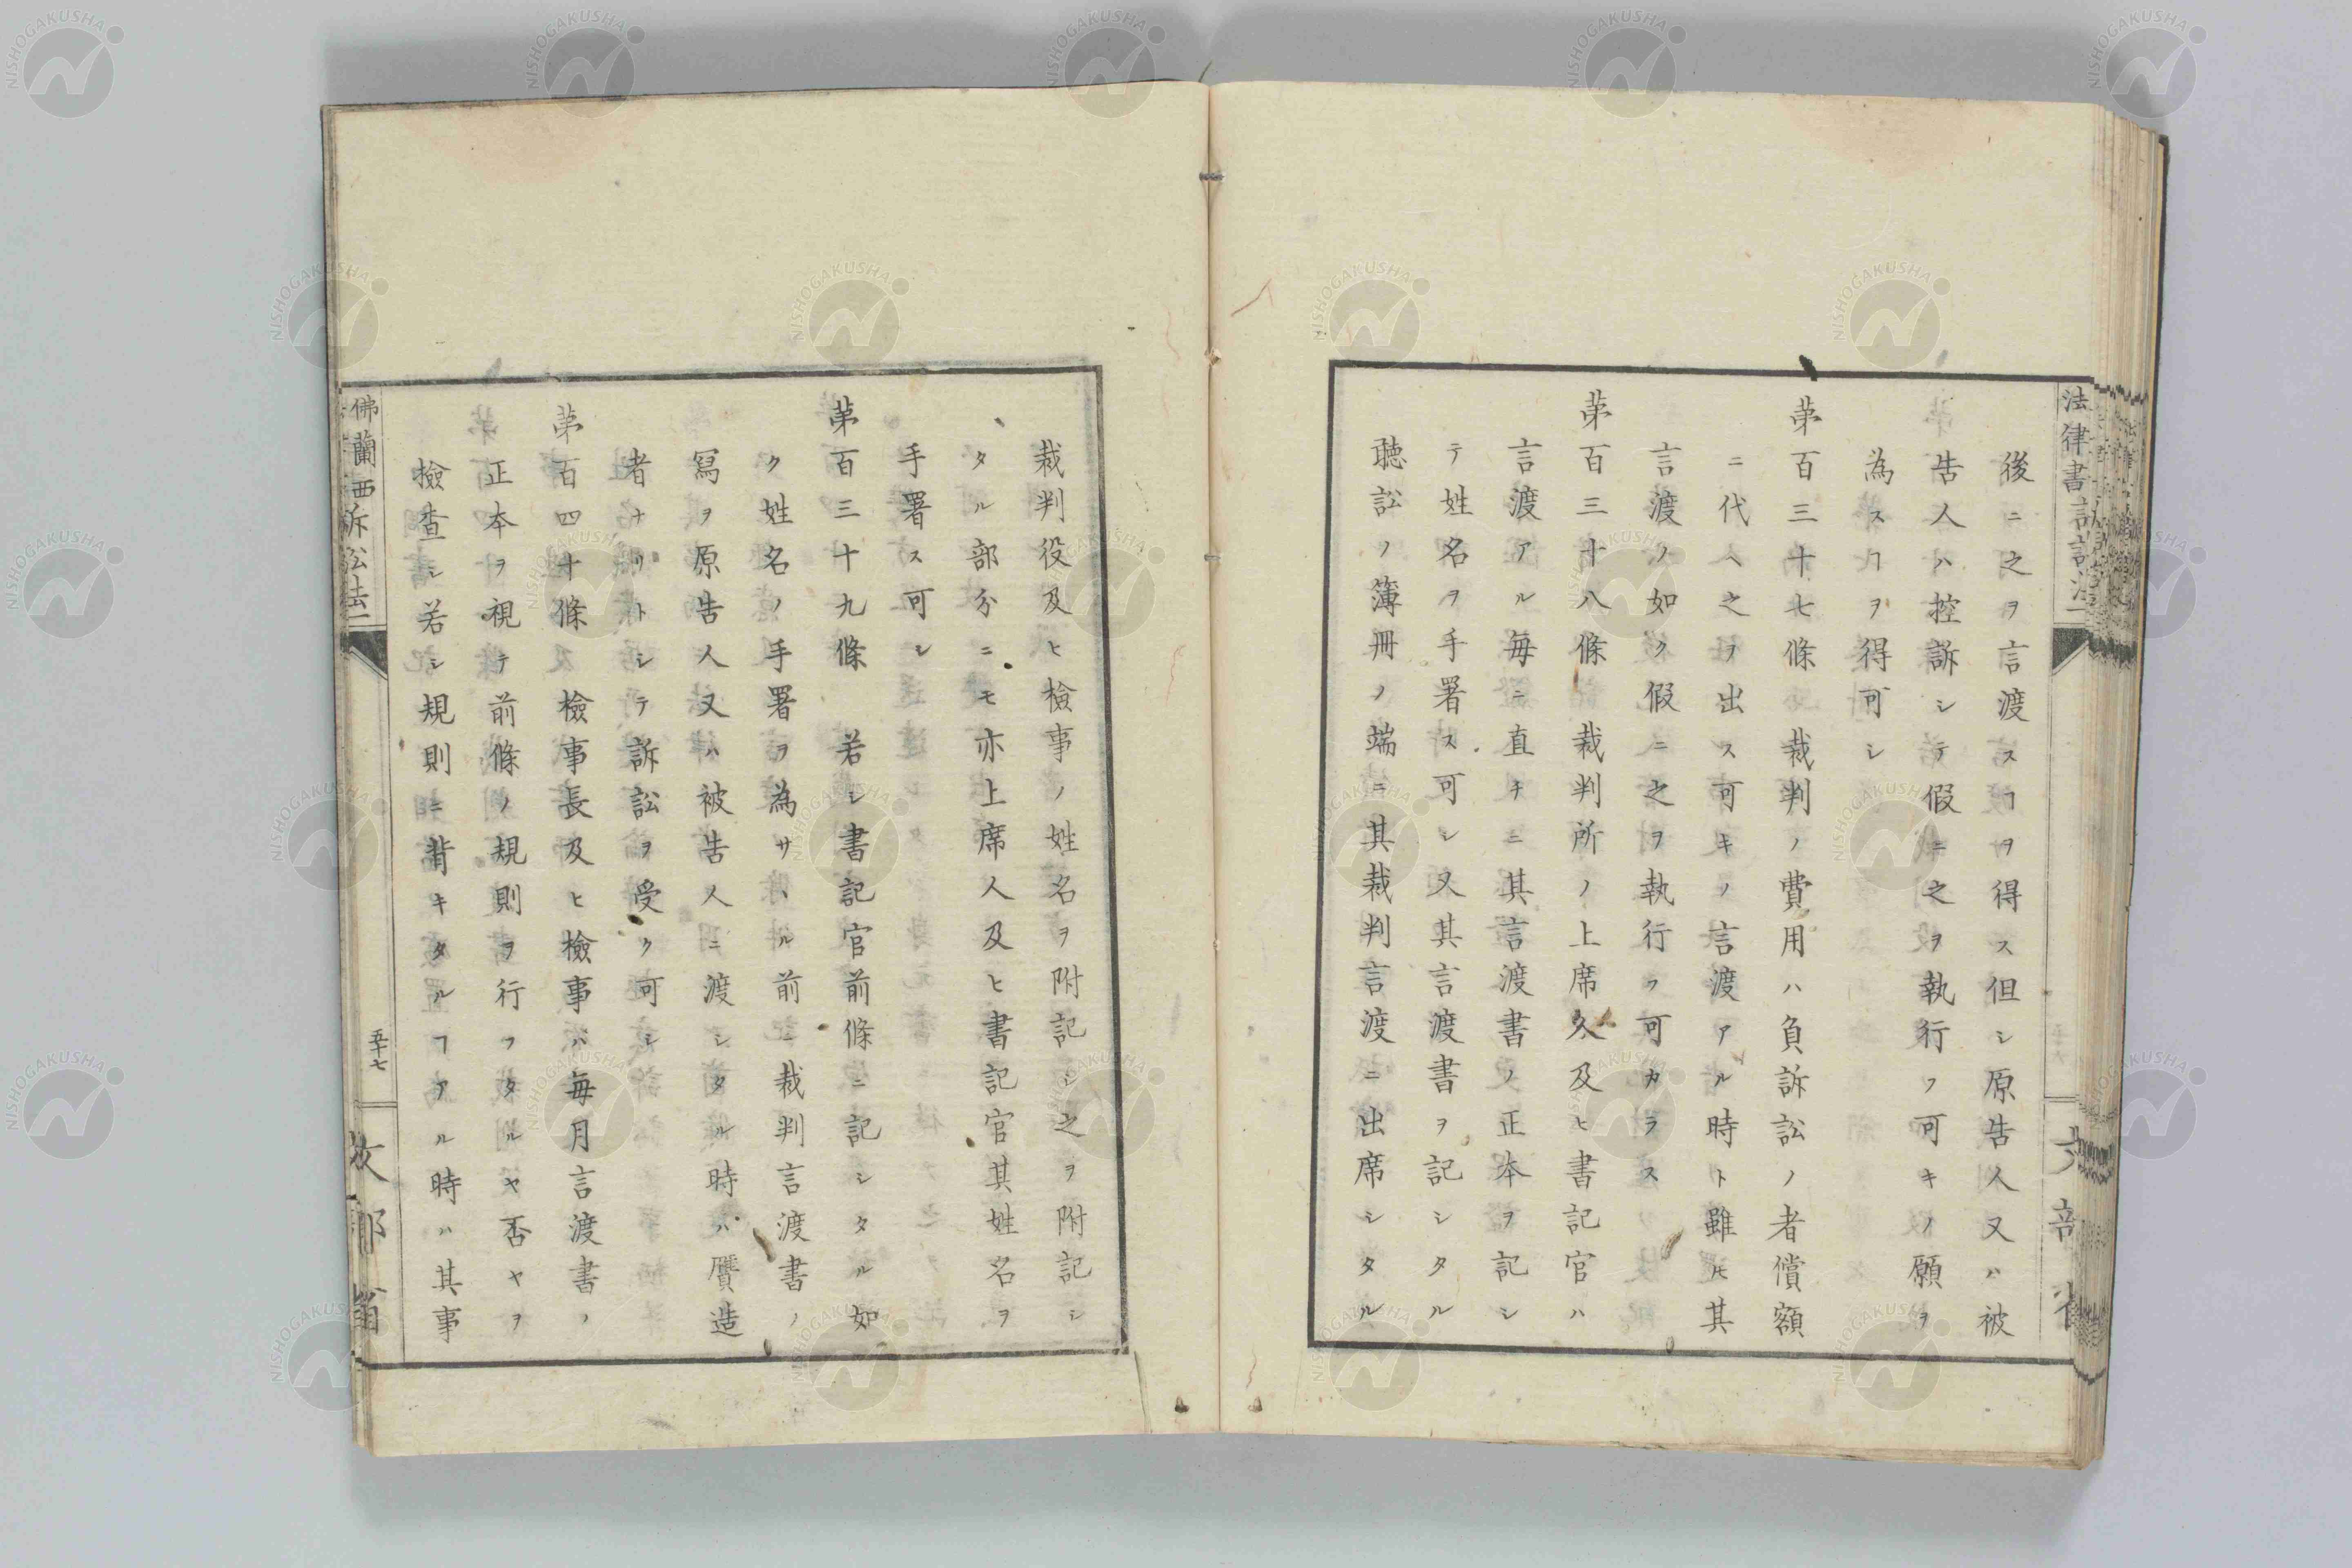 後ニ之ヲ言渡スヿヲ得ス但シ原告人又ハ被
告人ハ控訴シテ假ニ之ヲ執行フ可キノ願ヲ
為スヿヲ得可シ
苐百三十七條 裁判ノ費用ハ負訴訟ノ者償額
ニ代ヘ之ヲ出ス可キノ言渡アル時ト雖𪜈其
言渡ノ如ク假ニ之ヲ執行フ可カラス
苐百三十八條 裁判所ノ上席人及ヒ書記官ハ
言渡アル毎ニ直チニ其言渡書ノ正本ヲ記シ
テ姓名ヲ手署ス可シ又其言渡書ヲ記シタル
聽訟ノ簿冊ノ端ニ其裁判言渡ニ出席シタル
裁判役及ヒ檢事ノ姓名ヲ附記シ之ヲ附記シ
タル部分ニモ亦上席人及ヒ書記官其姓名ヲ
手署ス可シ
苐百三十九條 若シ書記官前條ニ記シタル如
ク姓名ノ手署ヲ為サヽル前ニ裁判言渡書ノ
冩ヲ原告人又ハ被告人ニ渡シタル時ハ贋造
者ナリトシテ訴訟ヲ受ク可シ
苐百四十條 檢事長及ヒ檢事ハ毎月言渡書ノ
正本ヲ視テ前條ノ規則ヲ行フタルヤ否ヤヲ
檢查シ若シ規則ニ背キタルヿアル時ハ其事
佛蘭西訴訟法一
五十七
NISHOGAKUSHA